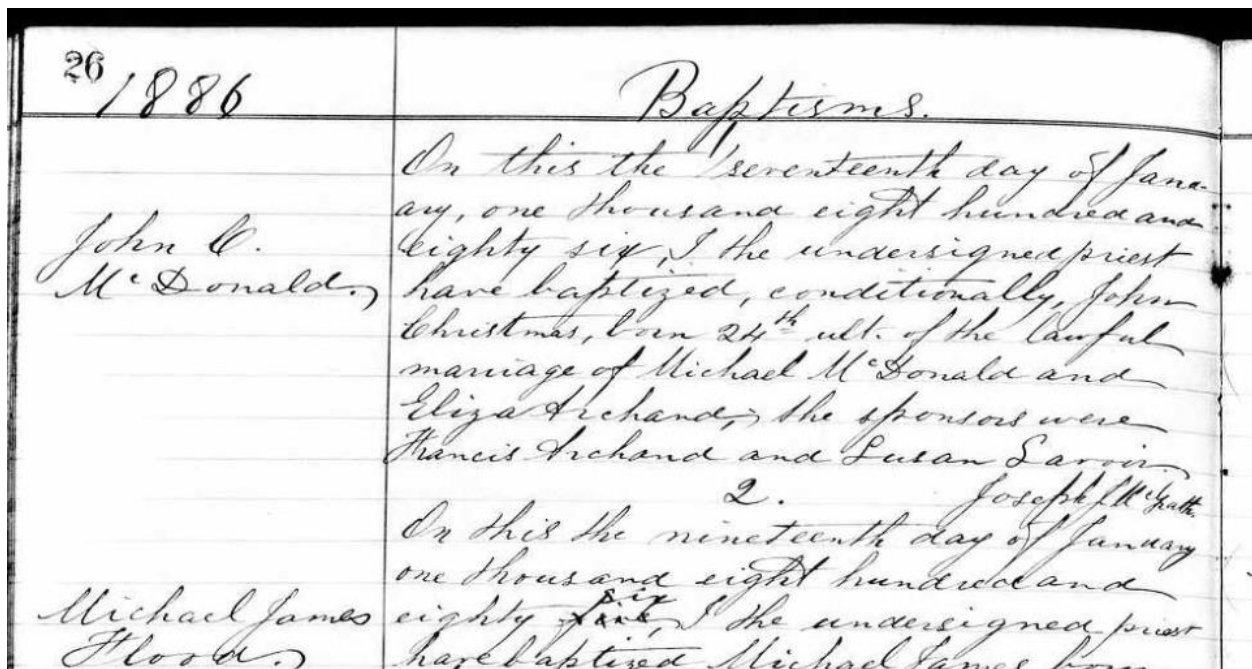 26
1886
Baptisms.
1
On this the seventeenth day of Janu-
ary, one thousand eight hundred and
John C.
eighty six, I the undersigned priest
McDonald.
have baptized, conditionally, John
Christmas, born 24th ult. of the lawful
marriage of Michael McDonald and
Eliza Archand; the sponsors were
Francis Archand and Susan Savoir.
2. Joseph J. McGrath.
On this the nineteenth day of January
one thousand eight hundred and
Michael James
eighty five six, I the undersigned priest
Flood.
have baptized Michael James born